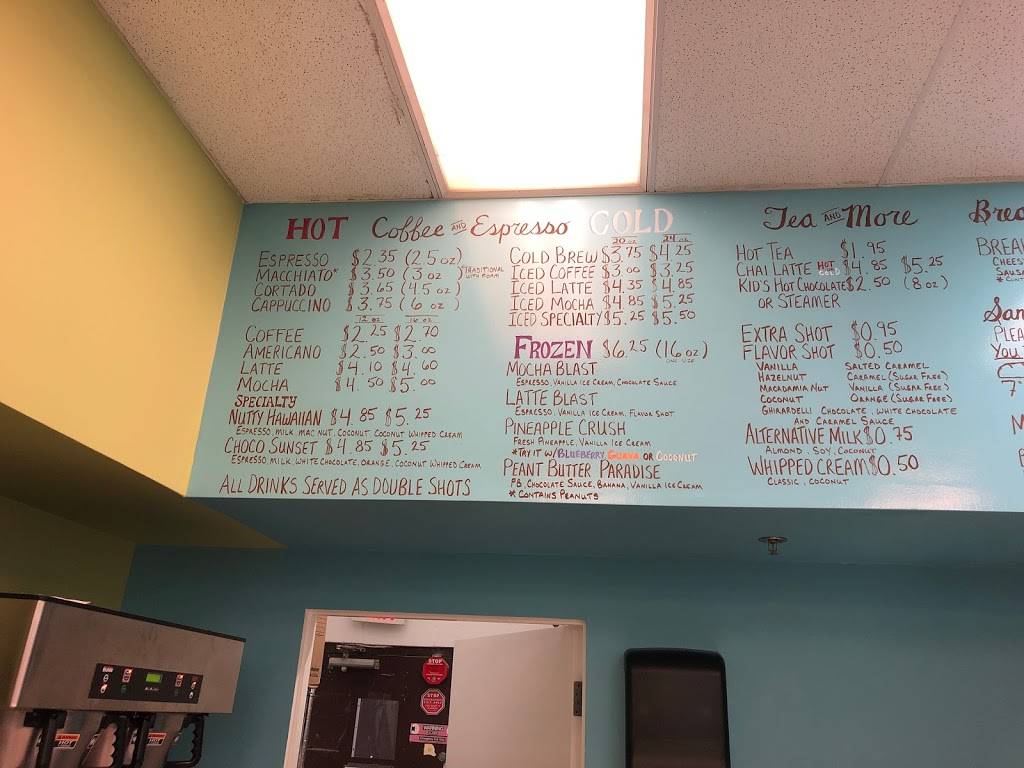 HOT Coffee AND Espresso COLD
ESPRESSO $2.35 (2.5 oz)
MACCHIATO* $3.50 (3 oz) *TRADITIONAL WITH FOAM
CORTADO $3.65 (4.5 oz)
CAPPUCCINO $3.75 (6 oz)
12 oz 16 oz
COFFEE $2.25 $2.70
AMERICANO $2.50 $3.00
LATTE $4.10 $4.60
MOCHA $4.50 $5.00
SPECIALTY
NUTTY HAWAIIAN $4.85 $5.25
ESPRESSO, MILK, MAC NUT, COCONUT, COCONUT WHIPPED CREAM
CHOCO SUNSET $4.85 $5.25
ESPRESSO, MILK, WHITE CHOCOLATE, ORANGE, COCONUT WHIPPED CREAM
ALL DRINKS SERVED AS DOUBLE SHOTS
20 oz 24 oz
COLD BREW $3.75 $4.25
ICED COFFEE $3.00 $3.25
ICED LATTE $4.35 $4.85
ICED MOCHA $4.85 $5.25
ICED SPECIALTY $5.25 $5.50
FROZEN $6.25 (16 oz)
ONE SIZE
MOCHA BLAST
ESPRESSO, VANILLA ICE CREAM, CHOCOLATE SAUCE
LATTE BLAST
ESPRESSO, VANILLA ICE CREAM, FLAVOR SHOT
PINEAPPLE CRUSH
FRESH PINEAPPLE, VANILLA ICE CREAM
*TRY IT W/BLUEBERRY, GUAVA OR COCONUT
PEANT BUTTER PARADISE
PB, CHOCOLATE SAUCE, BANANA, VANILLA ICE CREAM
* CONTAINS PEANUTS
Tea AND More
HOT TEA $1.95
CHAI LATTE HOT COLD $4.85 $5.25
KID'S HOT CHOCOLATE $2.50 (8 oz)
OR STEAMER
EXTRA SHOT $0.95
FLAVOR SHOT $0.50
VANILLA SALTED CARAMEL
HAZELNUT CARAMEL (SUGAR FREE)
MACADAMIA NUT VANILLA (SUGAR FREE)
COCONUT ORANGE (SUGAR FREE)
GHIRARDELLI CHOCOLATE, WHITE CHOCOLATE
AND CARAMEL SAUCE
ALTERNATIVE MILK $0.75
ALMOND, SOY, COCONUT
WHIPPED CREAM $0.50
CLASSIC, COCONUT
STOP
STOP